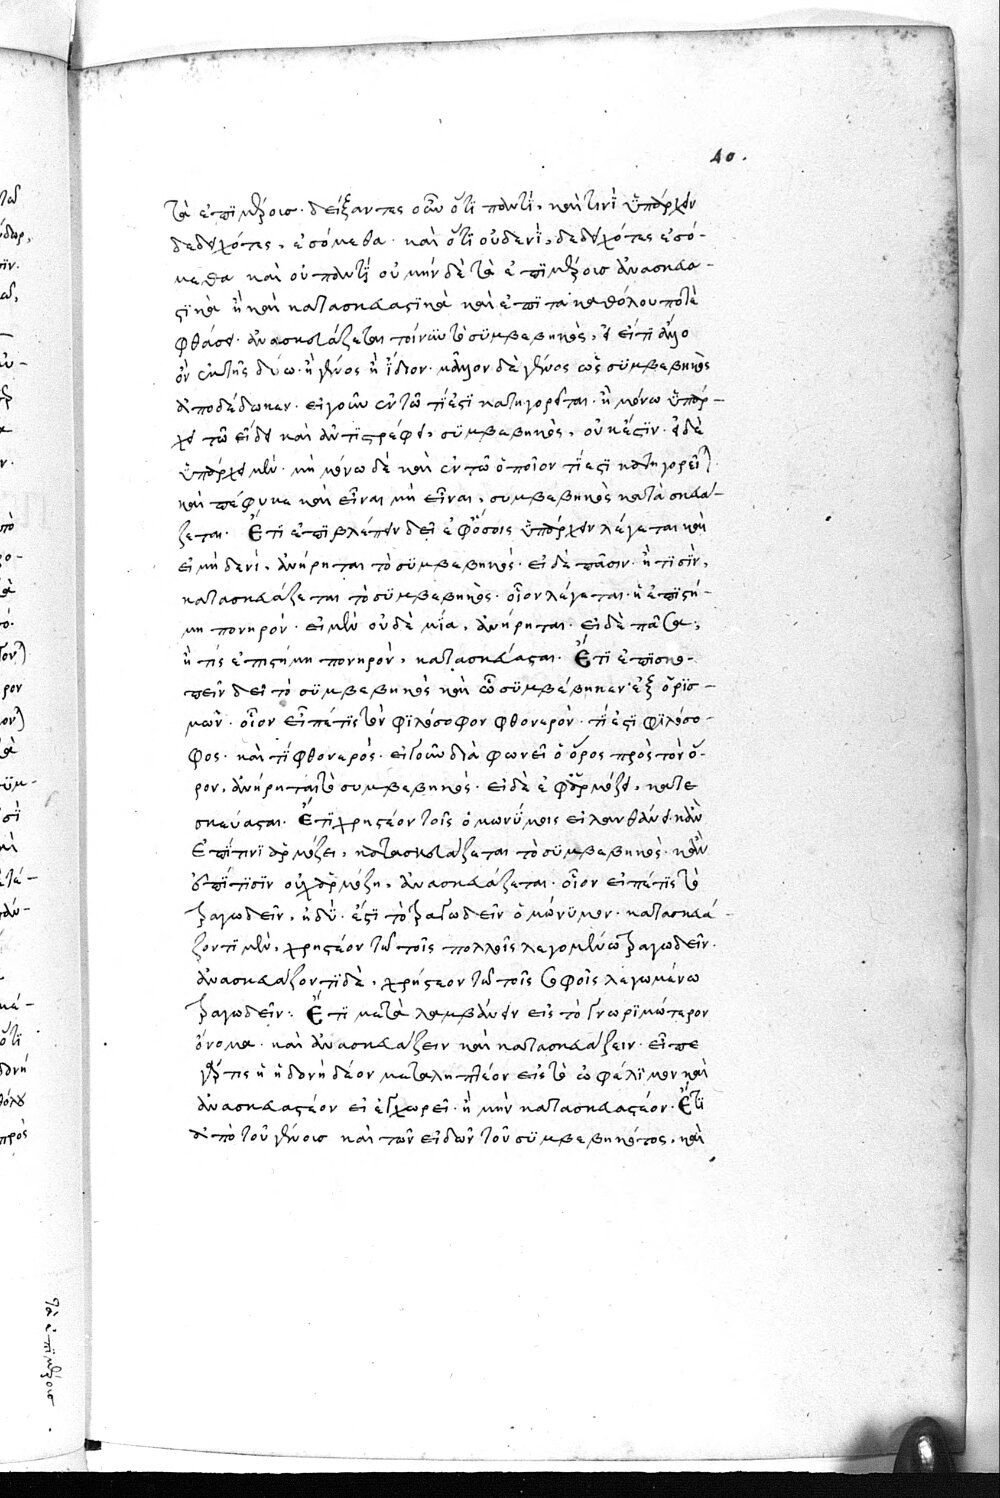 40.
τὰ ἐπὶ μέρους. δείξαντες οὖν ὅτι παντὶ, καὶ τινὶ ὑπάρχειν
δεδειχότες, ἐσόμεθα. καὶ ὅτι οὐδενὶ, δεδειχότες ἐσό-
μεθα καὶ οὐ παντὶ οὐ μὴν δὲ τὰ ἐπὶ μέρους ἀνασκευα-
στικὰ ἢ καὶ κατασκευαστικὰ καὶ ἐπὶ τὰ καθόλου ποτὲ
φθάσει. ἀνασκευάζεται τοίνυν τὸ συμβεβηκὸς, εἰ ἔστι ἄλλο
ὂν ἐκ τῆς δύω. ἢ γένος ἢ ἴδιον. μᾶλλον δὲ γένος ὡς συμβεβηκὸς
ἀποδέδωκεν. εἰ γοῦν ἐν τῶ τί ἐστι κατηγορεῖται. ἢ μόνω ὑπάρ-
χει τῶ εἴδει καὶ ἀντιστρέφει, συμβεβηκὸς, οὐκ ἔστιν. εἰ δὲ
ὑπάρχει μὲν. μὴ μόνω δὲ καὶ ἐν τῶ ὁποῖον τί ἐστι κατηγορεῖται
καὶ πέφυκε καὶ εἶναι μὴ εἶναι, συμβεβηκὸς κατασκευά-
ζεται. Ἔτι ἐπιβλέπειν δεῖ ἐφ' ὅσοις ὑπάρχειν λέγεται καὶ
εἰ μηδενὶ, ἀνήρηται τὸ συμβεβηκός. εἰ δὲ πᾶσιν. ἢ τισὶν,
κατασκευάζεται τὸ συμβεβηκὸς. οἷον λέγεται. ἡ ἐπιστή-
μη πονηρόν. εἰ μὲν οὐδὲ μία, ἀνήρηται. εἰ δὲ πᾶσα,
ἢ τίς ἐπιστήμη πονηρὸν, κατασκεύασται. Ἔτι ἐπισκο-
πεῖν δεῖ τὸ συμβεβηκὸς καὶ ὧ συμβέβηκεν ἐξ ὁρισ-
μῶν. οἷον εἶπέ τις τὸν φιλόσοφον φθονερόν. τί ἐστι φιλόσο-
φος. καὶ τί φθονερός. εἰ γοῦν διαφωνεῖ ὁ ὅρος πρὸς τὸν ὅ-
ρον, ἀνήρηται τὸ συμβεβηκός. εἰ δὲ ἐφαρμόζει, κατε
σκεύασται. Ἔτι χρηστέον τοῖς ὁμωνύμοις εἰ λανθάνει. κἂν
ἐπί τινι ἁρμόζει, κατασκευάζεται τὸ συμβεβηκός. κἂν
ἐπί τισιν οὐχ ἁρμόζη, ἀνασκευάζεται. οἷον εἰπέ τις τὸ
τραγωδεῖν, ἡδύ. ἐστι τὸ τραγωδεῖν ὁμώνυμον. κατασκευά-
ζοντι μὲν, χρηστέον τῶ τοῖς πολλοῖς λεγομένω τραγωδεῖν.
ἀνασκευάζοντι δὲ, χρήστεον τῶ τοῖς σοφοῖς λεγωμένω
τραγωδεῖν: Ἔτι μεταλαμβάνειν εἰς τὸ γνωριμώτερον
ὄνομα. καὶ ἀνασκευάζειν καὶ κατασκευάζειν. εἴπε
γάρ τις ἡ ἡδονὴ δέον μεταληπτέον εἰς τὸ ὠφέλιμον καὶ
ἀνασκευαστέον εἰ ἐγχωρεῖ. ἢ μὴν κατασκευαστέον. Ἔτι
ἀπὸ τοῦ γένους καὶ τῶν εἰδῶν τοῦ συμβεβηκότος, καὶ
τὰ ἐπὶ μέρους